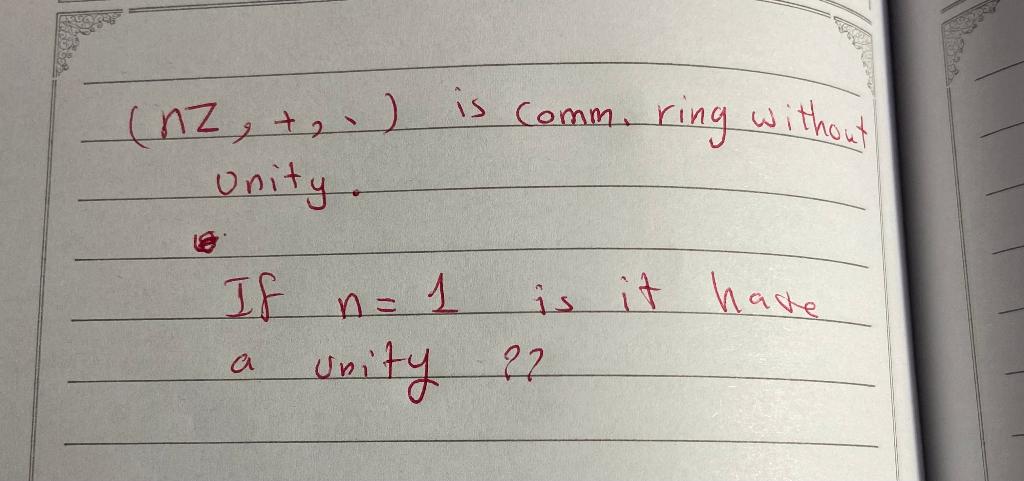 (nZ, +, ·) is comm. ring without
unity.
If n = 1 is it have
a unity ??